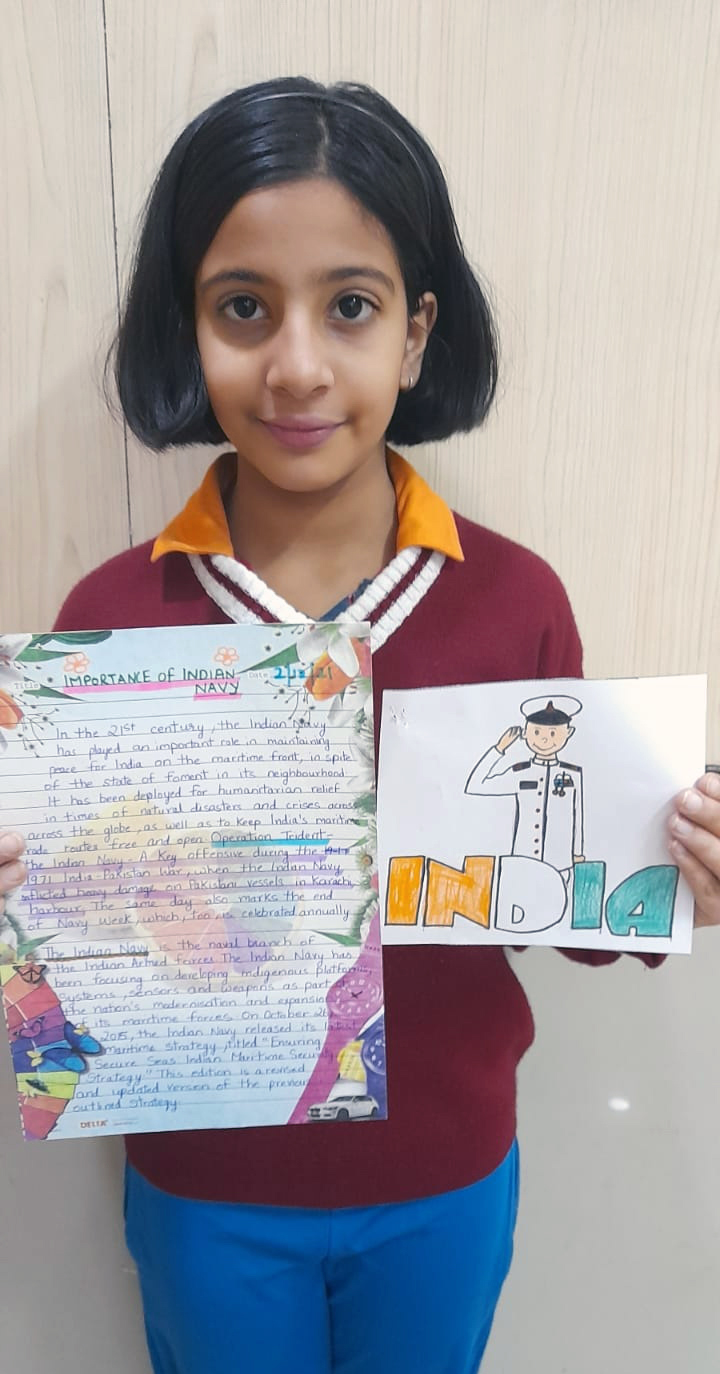 Title
IMPORTANCE OF INDIAN
NAVY
Date
In the 21st century, the Indian Navy
has played an important role in maintaining
peace for India on the maritime front, in spite
of the state of foment in its neighbourhood.
It has been deployed for humanitarian relief
in times of natural disasters and crises across
across the globe, as well as to keep India's maritime
rade routes free and open Operation Trident-
the Indian Navy - A Key offensive during the
1971 India-Pakistan War, when the Indian Navy
inflicted heavy damage on Pakistani vessels in Karachi
harbour. The same day also marks the end
of Navy Week, which, too is celebrated annually
The Indian Navy is the naval branch of
the Indian Armed forces The Indian Navy has
been focusing on developing indigenous platform
systems, sensors and weapons as part of
the nation's modernisation and expansion
of its maritime forces On October 26
2015, the Indian Navy released its latest
maritime strategy, titled "Ensuring
Secure Seas Indian Maritime Security
Strategy." This edition is a revised
and updated version of the previous
outlined strategy
DELTA
INDIA